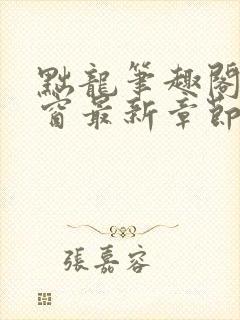 點龍筆趣閣
窗最新章節
張嘉容